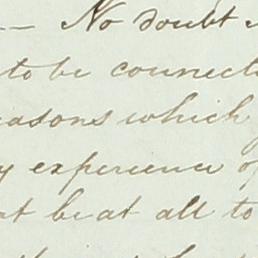 — No doubt
to be connect
easons which
y experience of
t beat all to